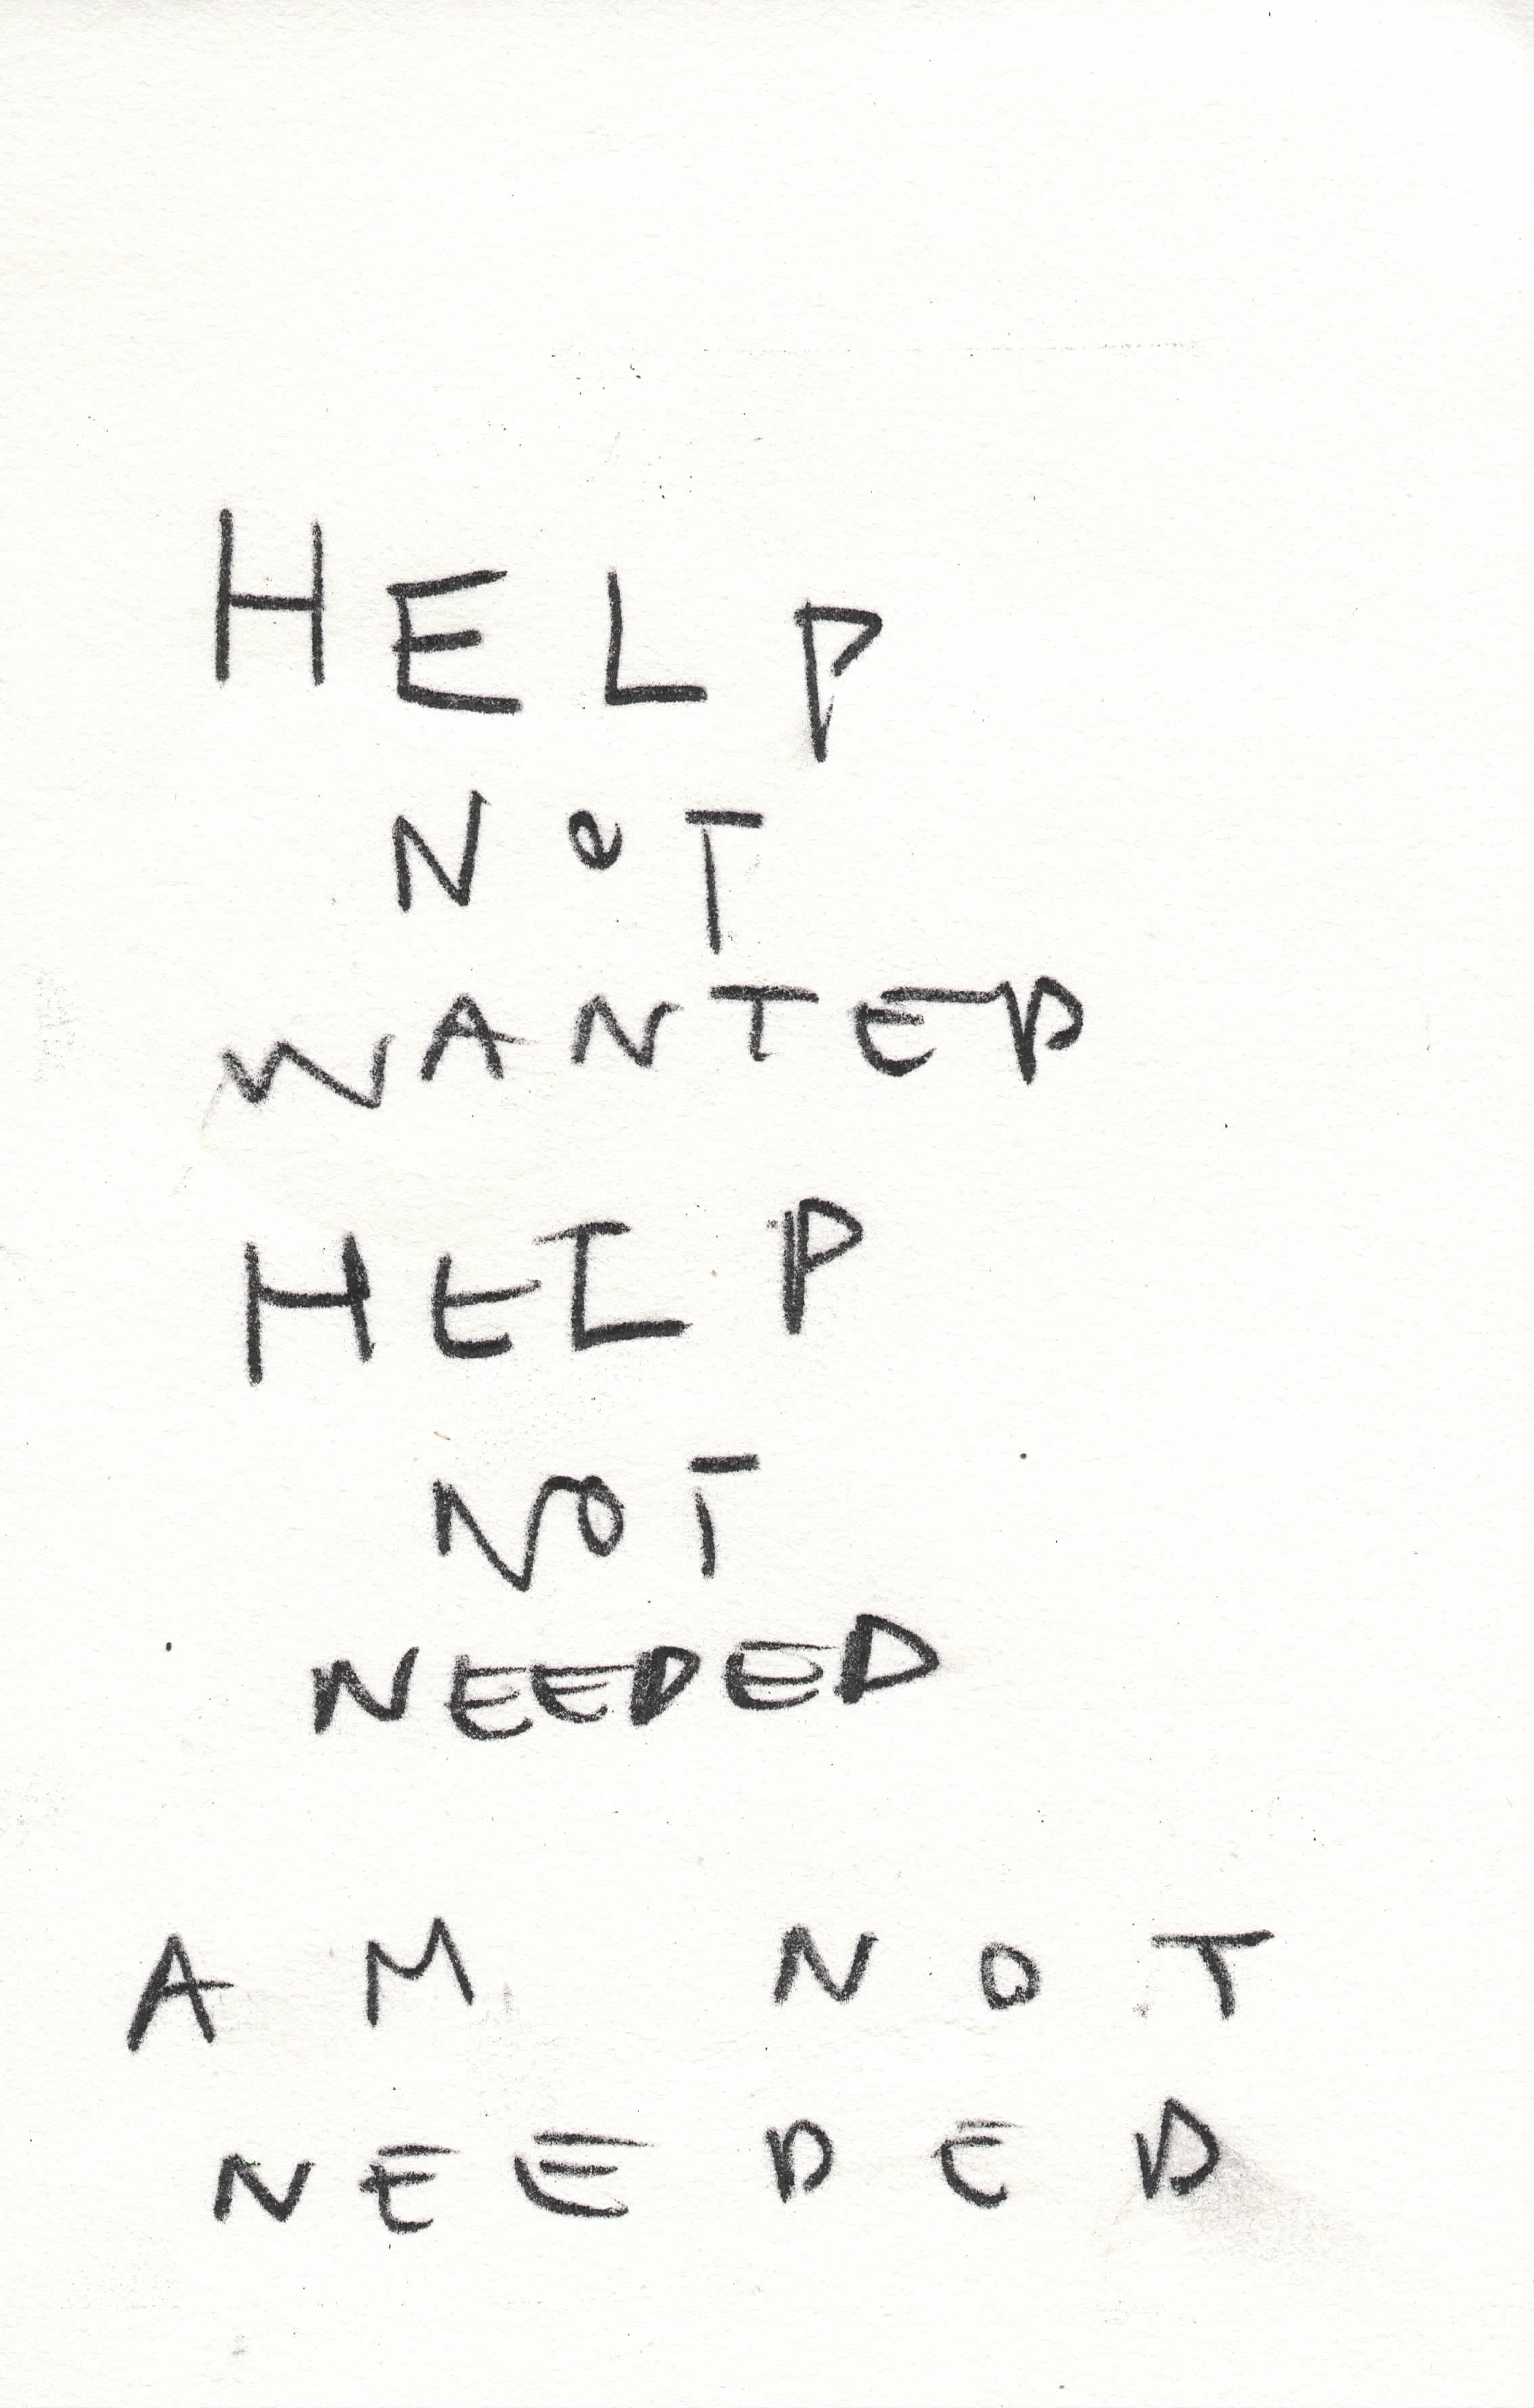 HELP
NOT
WANTED
HELP
NOT
NEEDED
AM NOT
NEEDED